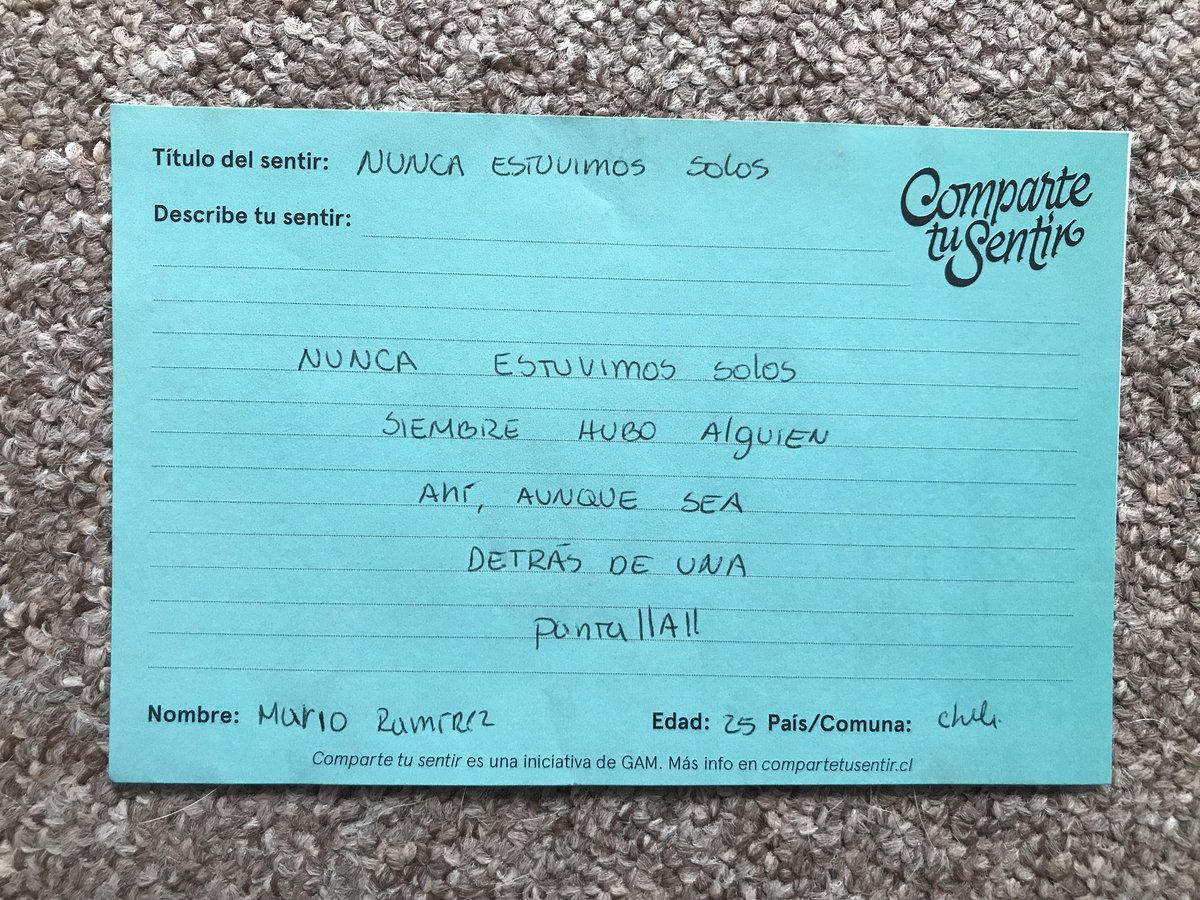 Título del sentir: NUNCA ESTUVIMOS Solos
Comparte
tu Sentir
Describe tu sentir:
NUNCA ESTUVIMOS Solos
SIEMBRE HUBO AlgUIEN
AHÍ, AUNQUE SEA
DETRÁS DE UNA
pantallA||
Nombre: Mario Ramírez Edad: 25 País/Comuna: Chile.
Comparte tu sentir es una iniciativa de GAM. Más info en compartetusentir.cl